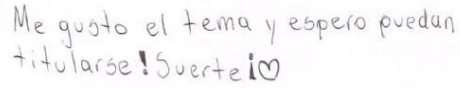 Me gusto el tema y espero puedan
titularse! Suerte¡♡